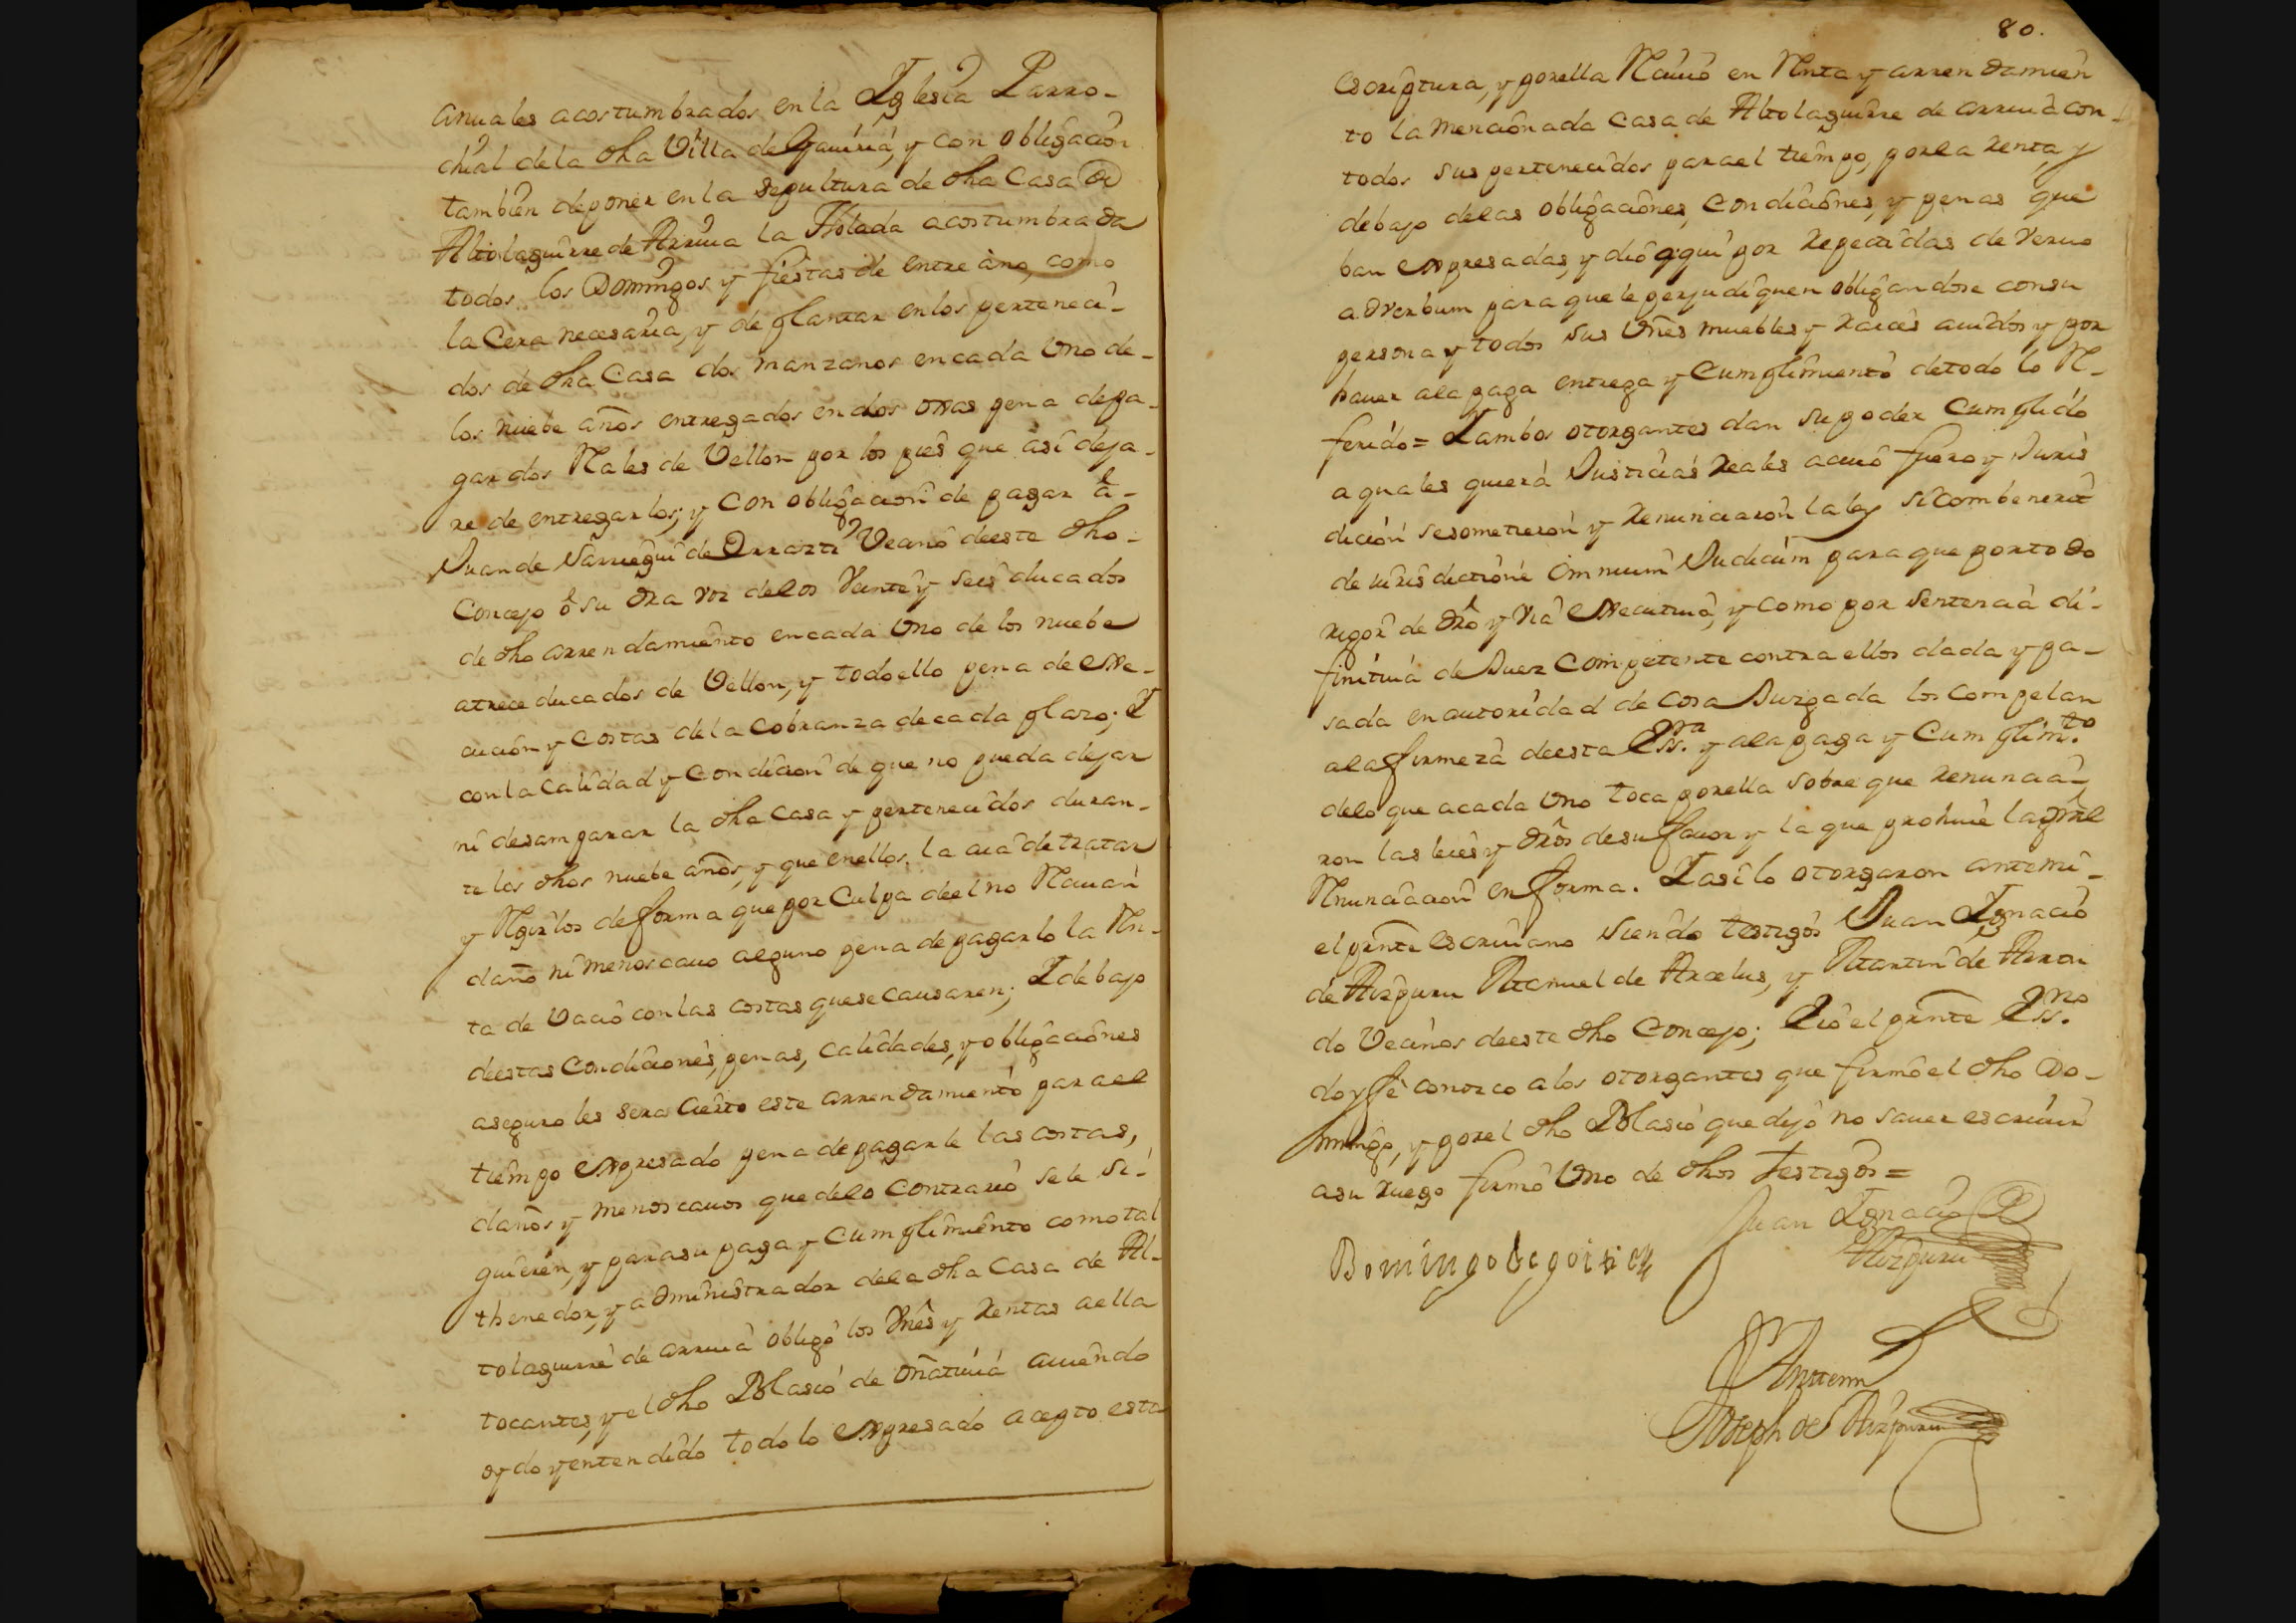 anuales acostumbrados en la Iglesia Parro-
chial de la dha Villa de Gauiria, y con obligacion
tambien de poner en la sepultura de dha Casa de
Altolaguirre de Arriua la Holada acostumbrada
todos los Domingos y fiestas de entre año, como
la Cera necesaria, y de plantar en los perteneci-
dos de dha Casa dos manzanos en cada Uno de-
los nuebe años entregados en dos oxas pena de pa-
gar dos Rales de Vellon por los pies que asi deja-
re de entregarlos; y con obligacion de pagar â-
Juan de Sarriegui de Orrazti Vecino de este dho-
Concejo ô su dra voz de los Veinte y seis ducados
de dho arrendamiento en cada Uno de los nuebe
a trece ducados de Vellon, y todo ello pena de exe-
cucion y costas de la cobranza de cada plazo; Y
con la calidad y condicion de que no pueda dejar
ni desamparar la dha Casa y pertenecidos duran-
te los dhos nuebe años, y que en ellos la aia de tratar
y Regirlos de forma que por Culpa de el no Reciuan
daño ni menoscauo alguno pena de pagarlo la Ren-
ta de Vacio con las costas que se causaren; Y debajo
de estas Condiciones, penas, calidades, y obligaciones
aseguro les sera Cierto este arrendamiento para el
tiempo expresado pena de pagarle las costas,
daños y menoscauos que de lo contrario se le si-
guieren, y para su paga y Cumplimiento como tal
thenedor, y administrador de la dha Casa de Al-
tolaguirre de arriua obligo los Vnês y Rentas a ella
tocantes, y el dho Blasio de oñatiuia auiendo
oydo y entendido todo lo expresado acepto esta
80.
escriptura, y por ella Reciuio en Renta y arrendamien
to la mencionada casa de Altolaguirre de arriua con-
todos sus pertenecidos para el tiempo, por la Renta, y
debajo de las obligaciones, condiciones, y penas que
ban expresadas, y dio aqui por Repetidas de Veruo
ad verbum para que le perjudiquen obligandose con su
persona y todos sus Vnês muebles y Raices auidos y por
hauer a la paga entrega y Cumplimiento de todo lo Re-
ferido= Y ambos otorgantes dan su poder Cumplido
a quales quiera Justicias Reales a cuio fuero y Juris
dicion se sometieron y Renunciaron la ley si combenerit
de iurisdictione omnium Judicum para que por todo
rigor de dro y via executiua, y como por sentencia di-
finitiua de Juez Competente contra ellos dada y pa-
sada en autoridad de cosa Juzgada los compelan
a la firmeza de esta Essra. y a la paga y Cumplimto.
de lo que a cada Uno toca por ella sobre que Renuncia-
ron las leies y dros de su fauor y la que prohiuie la gral
Renunciacion en forma. Y asi lo otorgaron ante mi-
el prnte escriuano siendo testigos Juan Ignacio
de Aizpuru Manuel de Arcelus, y Martin de
do Vecinos de este dho Concejo; Yo el prnte Essno.
doy fê conozco a los otorgantes que firmô el dho Do-
mingo, y por el dho Blasio que dijo no sauer escriuir
a su ruego firmo Uno de dhos testigos=
Juan Ignacio de
Aizpuru
Domingo legoitia
Ante mi
Joseph de Aizpuru